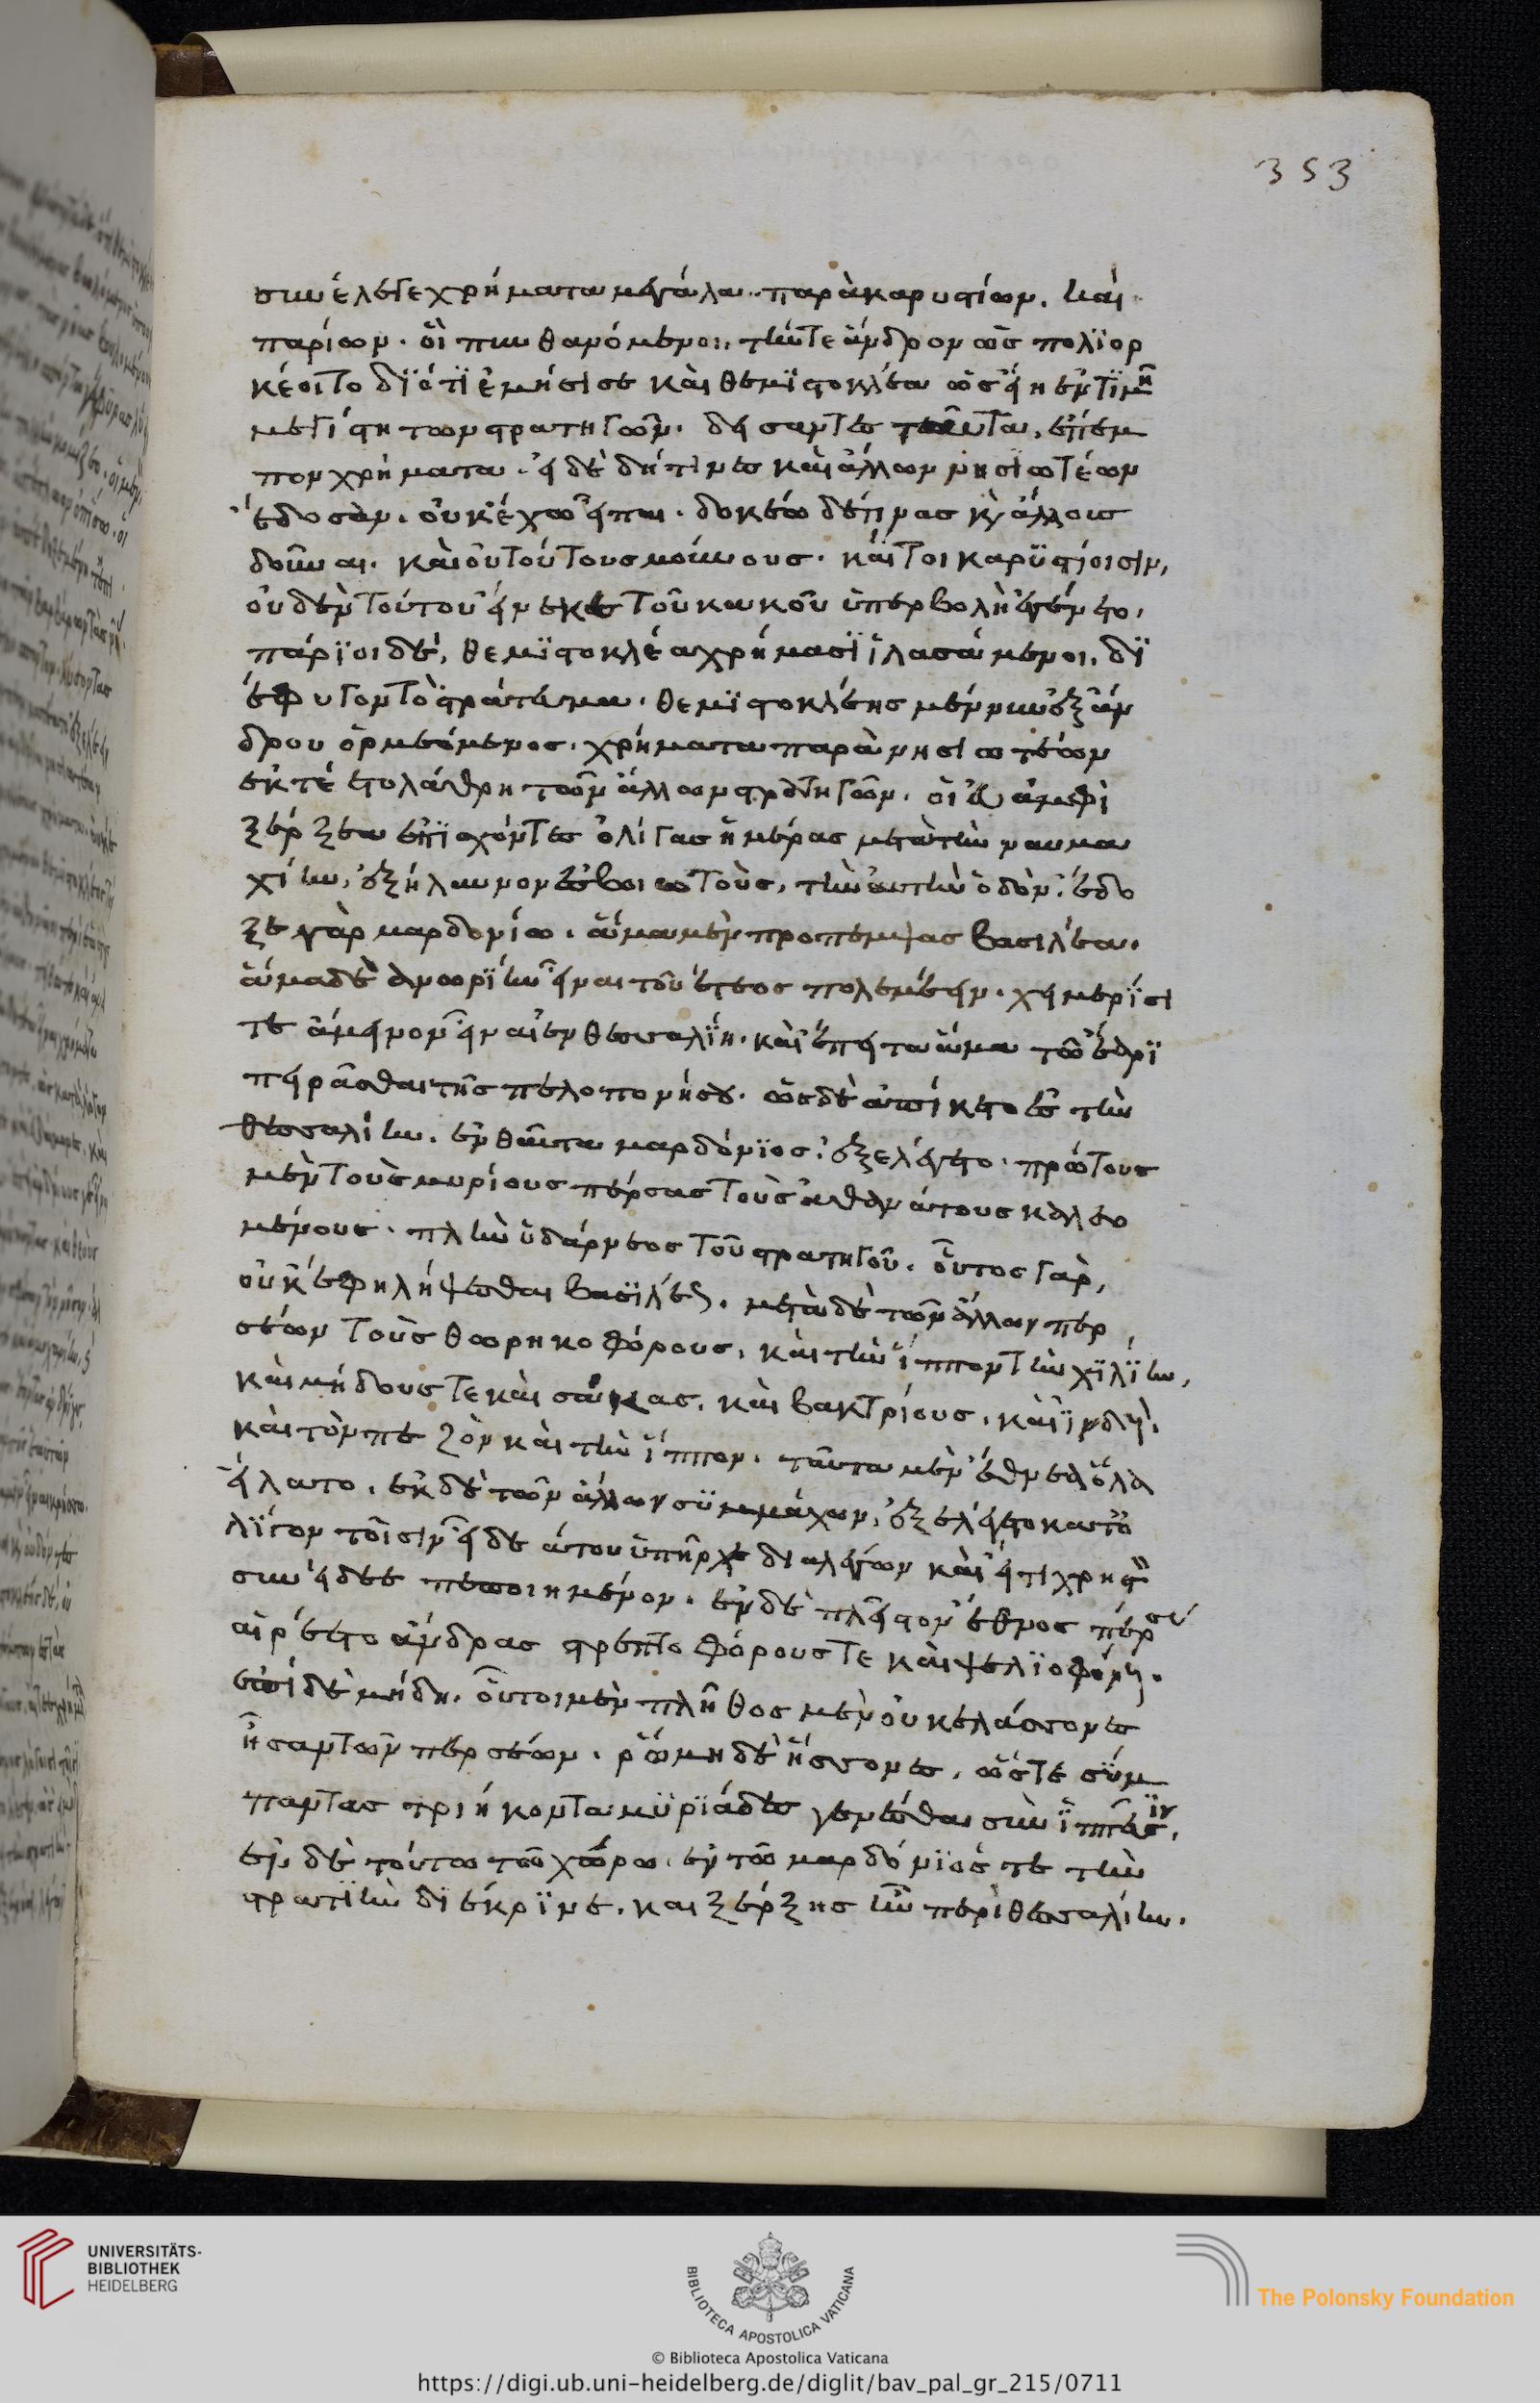 353
συνέλεγε χρήματα μεγάλα. παρὰ καρυστίων. καὶ
παρίων. οἳ πυνθανόμενοι, τήν τε ἄνδρον ὡς πολϊορ
κέοιτο δϊότϊ ἐμήδισε καὶ θεμϊστοκλέα ὡς εἴη ἐν τϊμῆ
μεγίστη τῶν στρατηγῶν. δείσαντες ταῦτα, ἔπεμ
πον χρήματα. εἰ δὲ δή τινες καὶ ἄλλων νησϊωτέων
ἔδοσαν. οὐκ ἔχω εἶπαι. δοκέω δέ τινας κ̀ ἄλλους
δοῦναι. καὶ οὐ τούτους μούνους. καί τοι καρϋστίοισιν,
οὐδὲν τούτου εἵνεκε τοῦ κακοῦ ὑπερβολὴ ἐγένετο.
πάρϊοι δὲ, θεμϊστοκλέα χρήμασϊ ἱλασάμενοι, δϊ
έφυγον τὸ στράτευμα. θεμϊστοκλέης μέν νυν ἐξ ἄν
δρου ὁρμεόμενος. χρήματα παρὰ νησϊωτέων
ἐκτέετο λάθρη τῶν ἄλλων στρατηγῶν. οἱ δ' ἀμφὶ
ξέρξεα ἐπϊσχόντες ὀλίγας ἡμέρας μετὰ τὴν ναυμα
χίην, ἐξήλαυνον ἐς βοιωτοὺς, τὴν αὐτὴν ὁδόν. ἔδο
ξε γὰρ μαρδονίω. ἅμα μὲν προπέμψας βασιλέα.
ἅμα δὲ ἀνωρϊην εἶναι τοῦ ἔτεος πολεμέειν. χειμερίσϊ
τε ἄμεινον εἶναι ἐν θεσσαλϊη. καὶ ἔπειτα ἅμα τῶ ἔαρϊ
πειρᾶσθαι τῆς πελοπονήσου. ὡς δὲ ἀπίκετο ἐς τὴν
θεσσαλίην. ἐνθαῦτα μαρδόνϊος ἐξελέγετο. πρώτους
μὲν τοὺς μυρίους πέρσας τοὺς ἀθανάτους καλεο
μένους. πλὴν ὑδάρνεος τοῦ στρατηγοῦ. οὗτος γὰρ,
οὐκ ἔφη λήψεσθαι βασϊλέος. μετὰ δὲ τῶν ἄλλων περ
σέων τοὺς θωρηκοφόρους. καὶ τὴν ἵππον τὴν χϊλϊην,
καὶ μήδους τε καὶ σάκας. καὶ βακτρίους. καὶ ϊνδούς.
καὶ τὸν πεζὸν καὶ τὴν ἵππον. ταῦτα μὲν ἔθνεα ὅλα
εἵλατο. ἐκ δὲ τῶν ἄλλων συμμάχων, ἐξελέγετο κατ' ὀ
λίγον τοῖσιν εἴδε άτου ὑπῆρχε διαλέγων καὶ εἴ τι χρηστὸ
συνείδεε πεποιημένον. ἓν δὲ πλεῖστον ἔθνος πέρσας
αἱρέετο ἄνδρας στρεπτοφόρους τε καὶ ψελϊοφόρους.
ἐπὶ δὲ μήδη. οὗτοι μὲν πλῆθος μὲν οὐκ ἐλάσσονες
ἦσαν τῶν περσέων. ῥώμη δὲ ἥσσονες. ὥστε σϋμ
παντας τριήκοντα μϋρϊάδες γενέσθαι σὺν ϊππεῦσϊν.
ἐν δὲ τούτω τῶ χώρω. ἐν τῶ μαρδόνϊός τε τὴν
στρατϊὴν δϊέκρϊνε. καὶ ξέρξης ἦν περὶ θεσσαλίην.
UNIVERSITÄTS-
BIBLIOTHEK
HEIDELBERG
BIBLIOTECA APOSTOLICA VATICANA
The Polonsky Foundation
© Biblioteca Apostolica Vaticana
https://digi.ub.uni-heidelberg.de/diglit/bav_pal_gr_215/0711